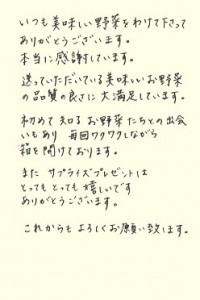 いつも美味しい野菜をわけて下さって
ありがとうございます。
本当に感謝しています。
送っていただいている美味しいお野菜
の品質の良さに大満足しています。
初めて知るお野菜たちとの出会
いもあり 毎回ワクワクしながら
箱を開けております。
また サプライズプレゼントは
とってもとっても嬉しいです
ありがとうございます。
これからもよろしくお願い致します。